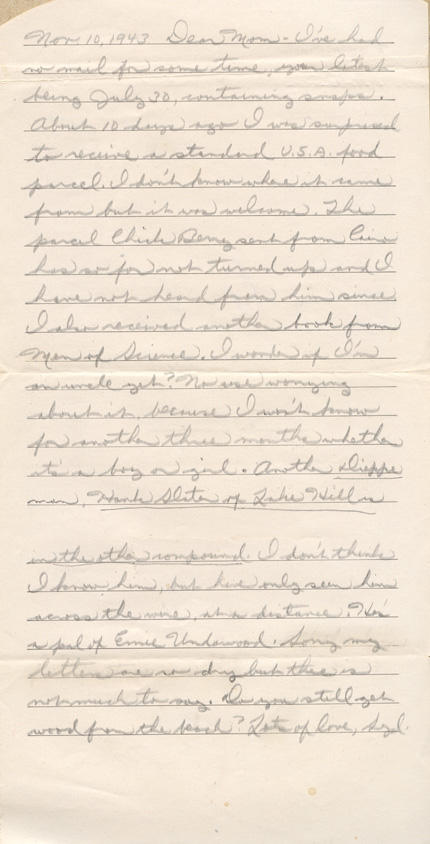 Nov. 10, 1943 Dear Mom - I've had
no mail for some time, your latest
being July 30, containing snaps.
About 10 days ago I was surprised
to receive a standard U.S.A. food
parcel. I don't know where it came
from but it was welcome. The
parcel Chick sent from Cairo
has so far not turned up and I
have not heard from him since
I also received another book from
Men of Science. I wonder if I'm
an uncle yet? No use worrying
about it, because I won't know
for another three months whether
it's a boy or girl. Another Dieppe
man, Hank Slater of Lake Hill is
in the other compound. I don't think
I know him, but have only seen him
across the wire, at a distance. He's
a pal of Ernie Underwood. Sorry my
letters are so dry but there is
not much to say. Do you still get
wood from the beach? Lots of love, Syd.